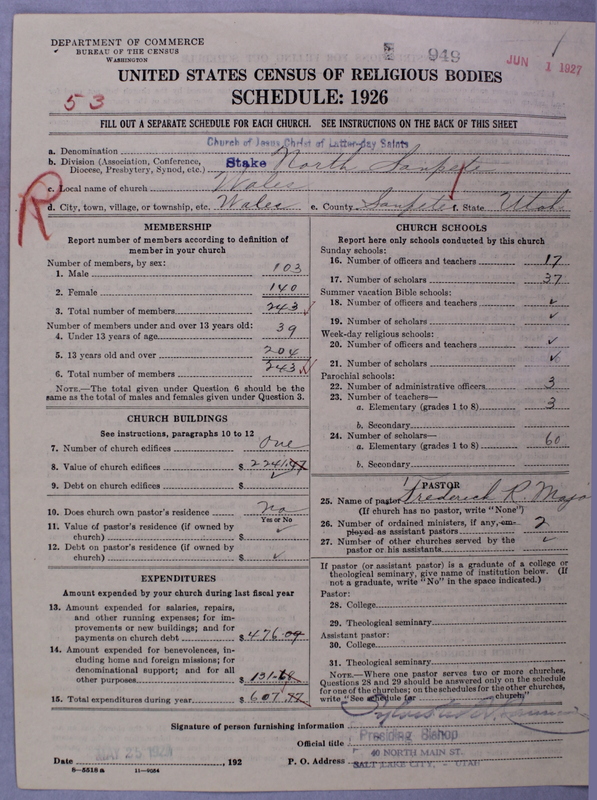 DEPARTMENT OF COMMERCE
BUREAU OF THE CENSUS
WASHINGTON
949
JUN 1 1927
UNITED STATES CENSUS OF RELIGIOUS BODIES
53
SCHEDULE: 1926
FILL OUT A SEPARATE SCHEDULE FOR EACH CHURCH. SEE INSTRUCTIONS ON THE BACK OF THIS SHEET
a. Denomination Church of Jesus Christ of Latter-day Saints
b. Division (Association, Conference, Diocese, Presbytery, Synod, etc.) Stake North Sanpete
R
c. Local name of church Wales
d. City, town, village, or township, etc. Wales e. County Sanpete f. State Utah
MEMBERSHIP
Report number of members according to definition of member in your church
Number of members, by sex:
1. Male 103
2. Female 140
3. Total number of members 243
Number of members under and over 13 years old:
4. Under 13 years of age 39
5. 13 years old and over 204
6. Total number of members 243
NOTE.—The total given under Question 6 should be the same as the total of males and females given under Question 3.
CHURCH BUILDINGS
See instructions, paragraphs 10 to 12
7. Number of church edifices One
8. Value of church edifices $ 2241.47
9. Debt on church edifices $
10. Does church own pastor's residence No
Yes or No
11. Value of pastor's residence (if owned by church) $
12. Debt on pastor's residence (if owned by church) $
EXPENDITURES
Amount expended by your church during last fiscal year
13. Amount expended for salaries, repairs, and other running expenses; for improvements or new buildings; and for payments on church debt $ 476.09
14. Amount expended for benevolences, including home and foreign missions; for denominational support; and for all other purposes $ 131.68
15. Total expenditures during year $ 607.77
CHURCH SCHOOLS
Report here only schools conducted by this church
Sunday schools:
16. Number of officers and teachers 17
17. Number of scholars 37
Summer vacation Bible schools:
18. Number of officers and teachers
19. Number of scholars
Week-day religious schools:
20. Number of officers and teachers
21. Number of scholars
Parochial schools:
22. Number of administrative officers 3
23. Number of teachers—
a. Elementary (grades 1 to 8) 3
b. Secondary
24. Number of scholars—
a. Elementary (grades 1 to 8) 60
b. Secondary
PASTOR
25. Name of pastor Frederick R.
(If church has no pastor, write "None")
26. Number of ordained ministers, if any, employed as assistant pastors 2
27. Number of other churches served by the pastor or his assistants
If pastor (or assistant pastor) is a graduate of a college or theological seminary, give name of institution below. (If not a graduate, write "No" in the space indicated.)
Pastor:
28. College
29. Theological seminary
Assistant pastor:
30. College
31. Theological seminary
NOTE.—Where one pastor serves two or more churches, Questions 28 and 29 should be answered only on the schedule for one of the churches; on the schedules for the other churches, write "See schedule for church."
Signature of person furnishing information
Official title Presiding Bishop
Date MAY 25 , 192 P. O. Address 40 NORTH MAIN ST.
SALT LAKE CITY, UTAH
8—5518 a 11—9054